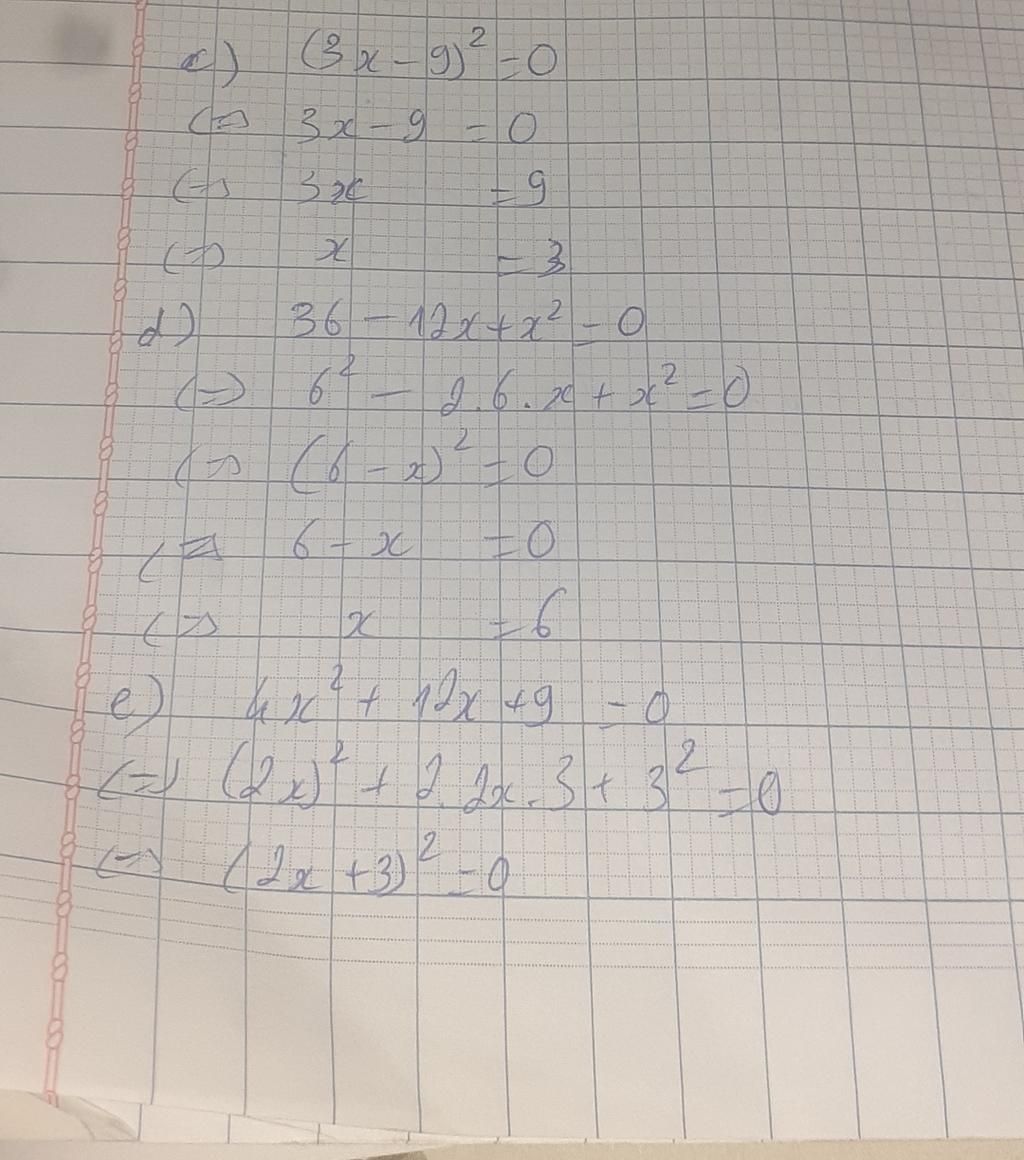 c) (3x-9)² = 0
<=> 3x-9 = 0
<=> 3x = 9
<=> x = 3
d) 36 - 12x + x² = 0
<=> 6² - 2.6.x + x² = 0
<=> (6-x)² = 0
<=> 6-x = 0
<=> x = 6
e) 4x² + 12x + 9 = 0
<=> (2x)² + 2.2x.3 + 3² = 0
<=> (2x+3)² = 0